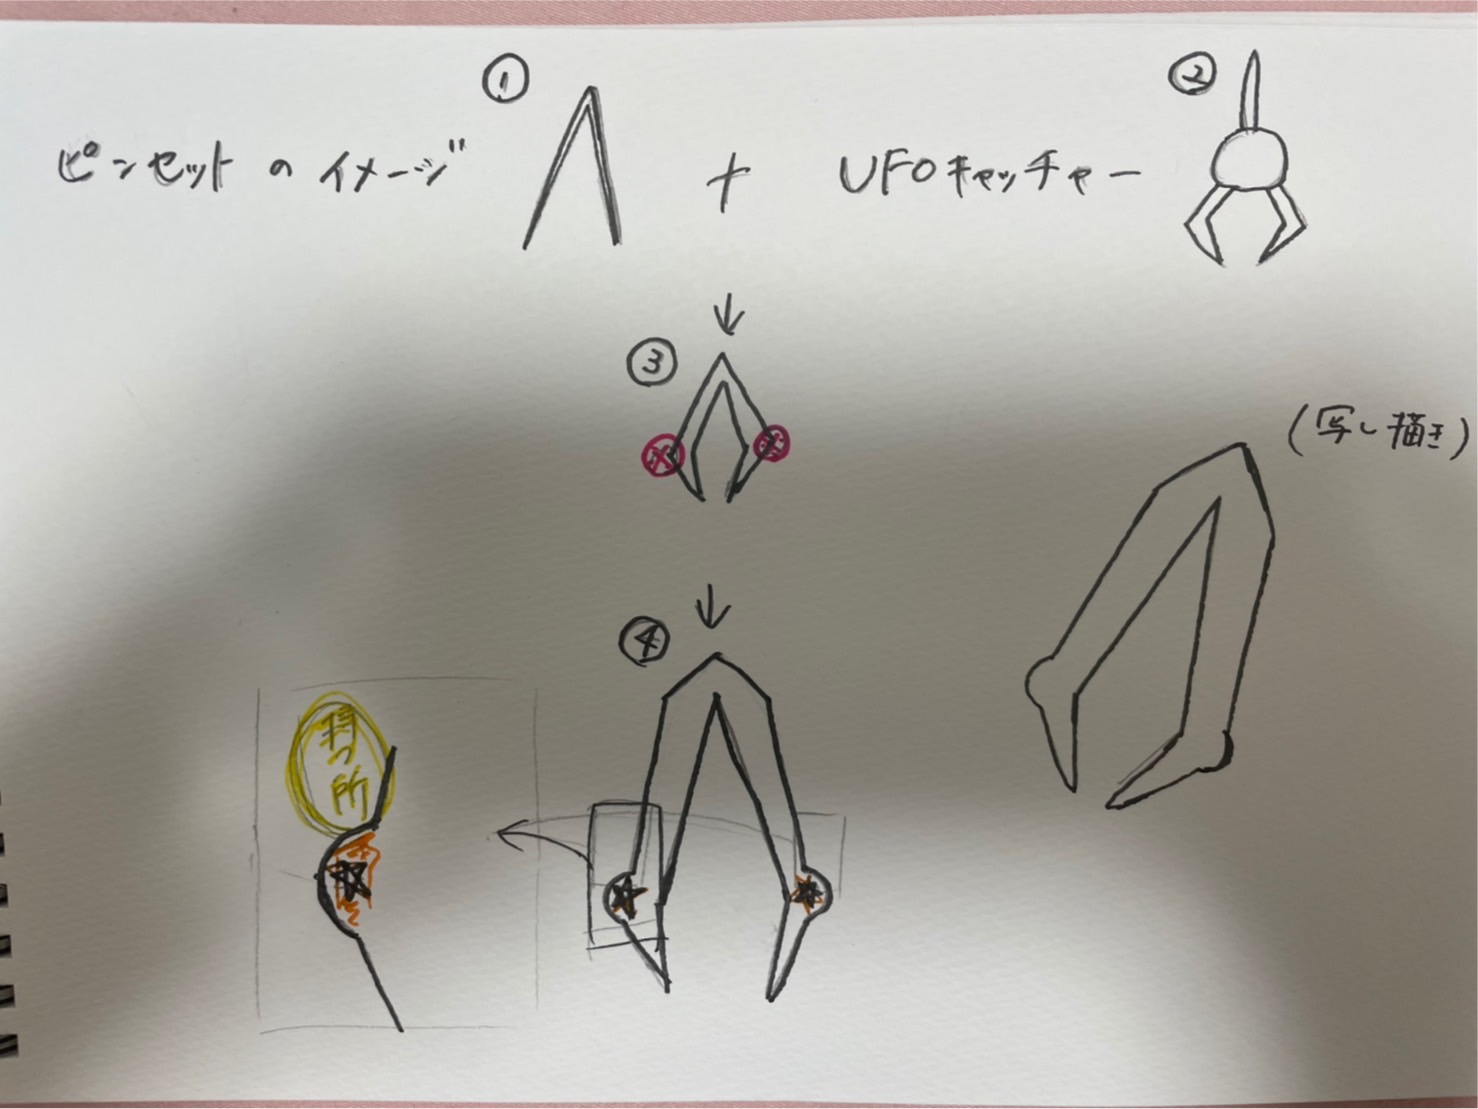 ①
②
ピンセットのイメージ + UFOキャッチャー
③
(写し描き)
④
持つ所